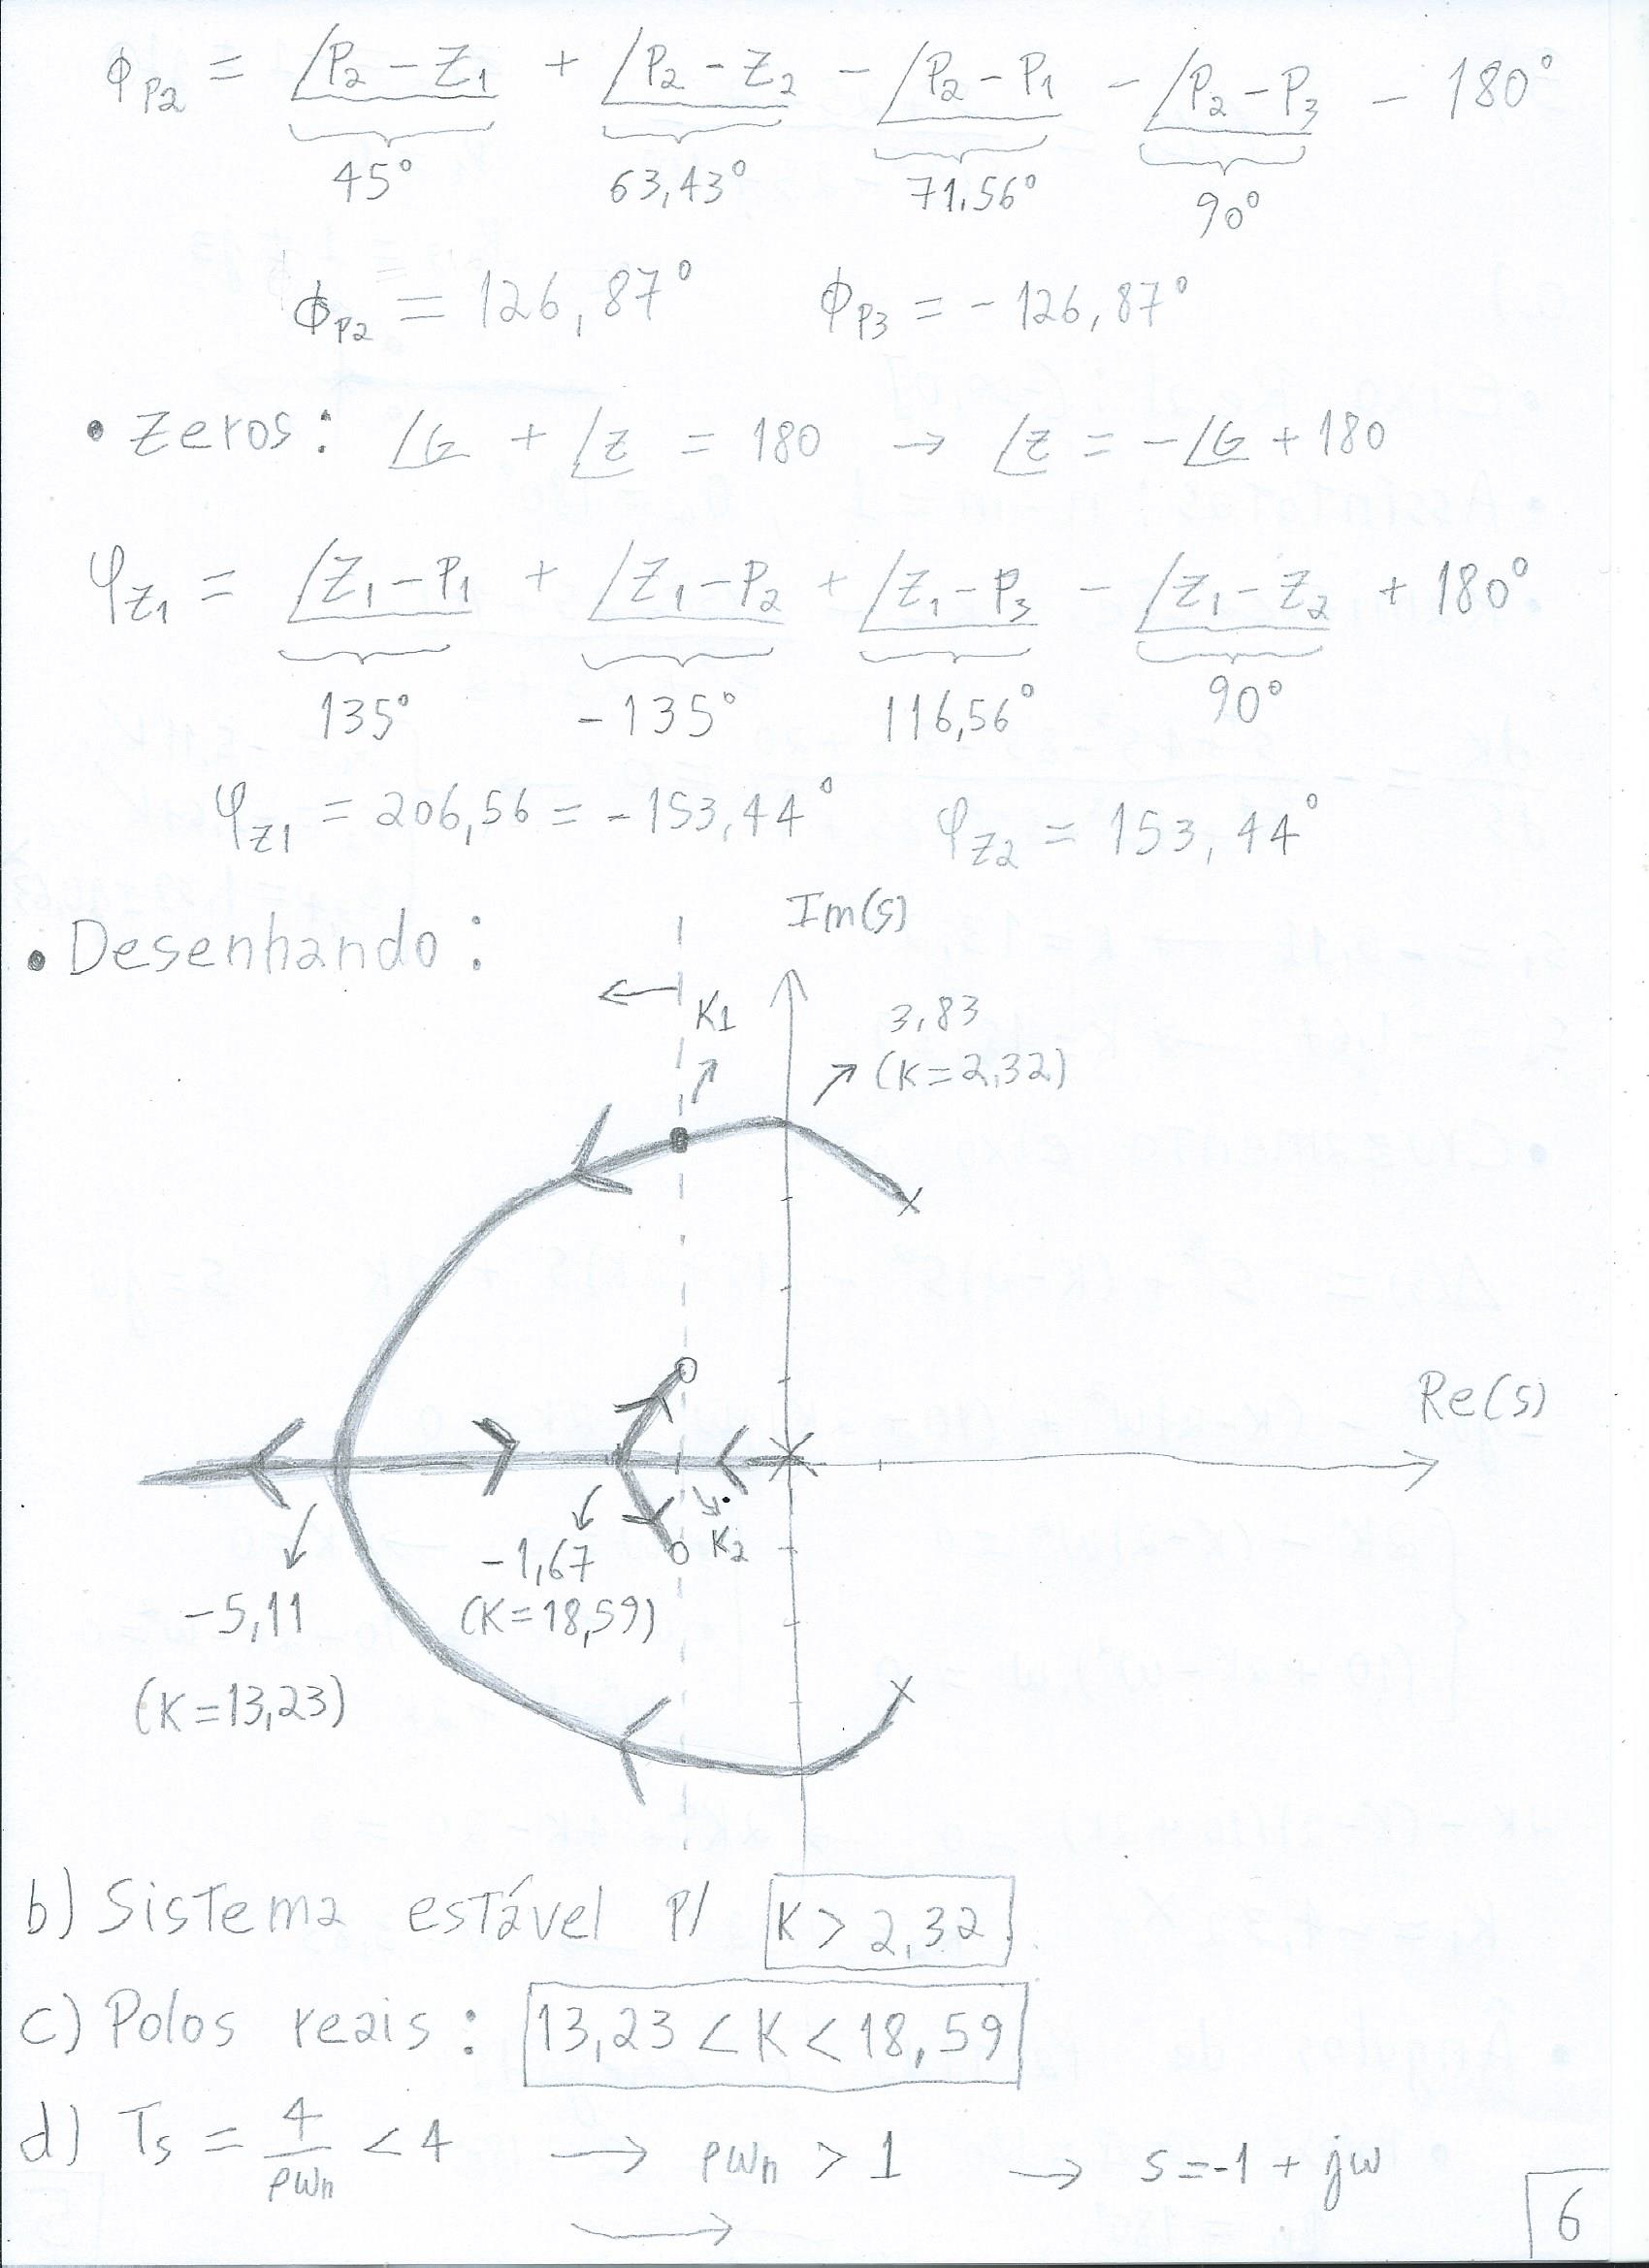 ϕP2 = ∠P2 - Z1 + ∠P2 - Z2 - ∠P2 - P1 - ∠P2 - P3 - 180°
45° 63,43° 71,56° 90°
ϕP2 = 126,87° ϕP3 = -126,87°
• Zeros: ∠G + ∠Z = 180 → ∠Z = -∠G + 180
φZ1 = ∠Z1 - P1 + ∠Z1 - P2 + ∠Z1 - P3 - ∠Z1 - Z2 + 180°
135° -135° 116,56° 90°
φZ1 = 206,56 = -153,44° φZ2 = 153,44°
• Desenhando:
Im(s)
K1
3,83
(K=2,32)
Re(s)
K2
-1,67
(K=18,59)
-5,11
(K=13,23)
b) Sistema estável p/ K > 2,32
c) Polos reais: 13,23 < K < 18,59
d) Ts = 4/ρWn < 4 → ρWn > 1 → s=-1 + jw
→
6